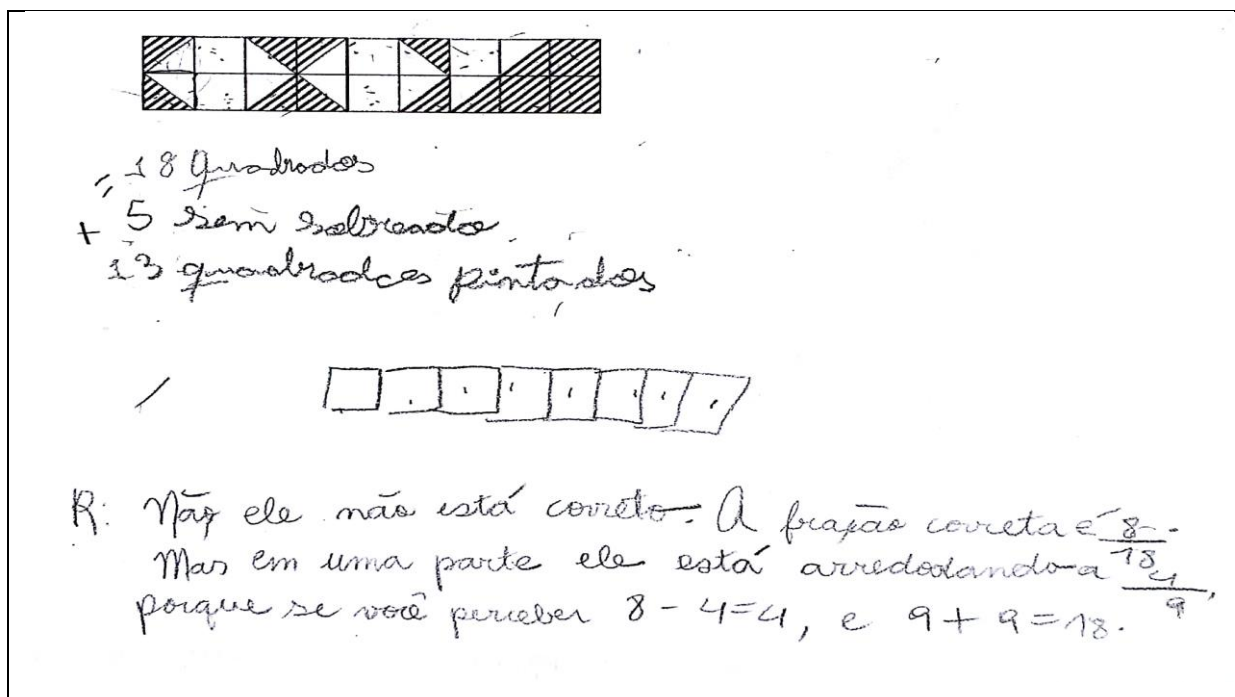 = 18 quadrados
+ 5 sem sobreado
13 quadrados pintados
R: Não ele não está correto. A fração correta é 8/18.
Mas em uma parte ele está arredodando a 4/9,
porque se você perceber 8 - 4 = 4, e 9 + 9 = 18.